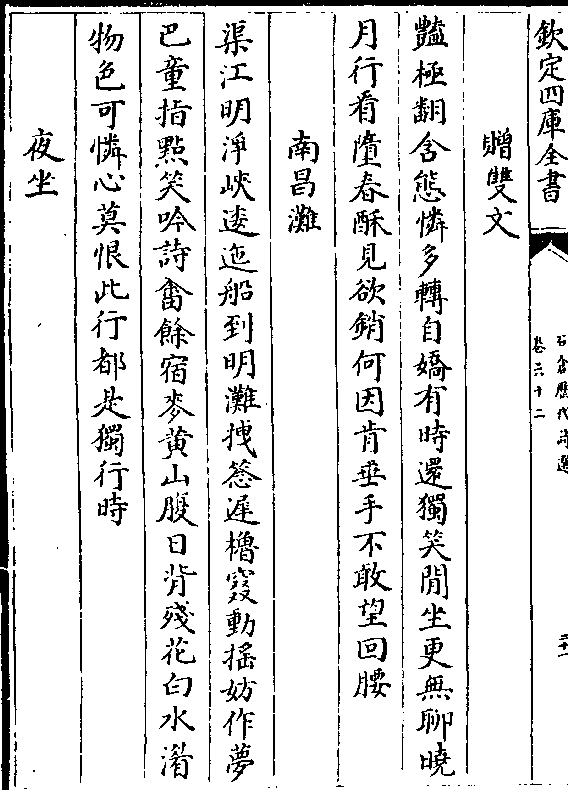 欽定四庫全書
石倉歷代詩選
卷六十二
贈雙文
豔極翻含態憐多轉自嬌有時還獨笑閒坐更無聊曉
月行看墮春酥見欲銷何因肯垂手不敢望回腰
南昌灘
渠江明淨峽逶迤船到明灘拽䉡遲櫓窡動摇妨作夢
巴童指點笑吟詩畬餘宿麥黄山腹日背殘花白水湄
物色可憐心莫恨此行都是獨行時
夜坐